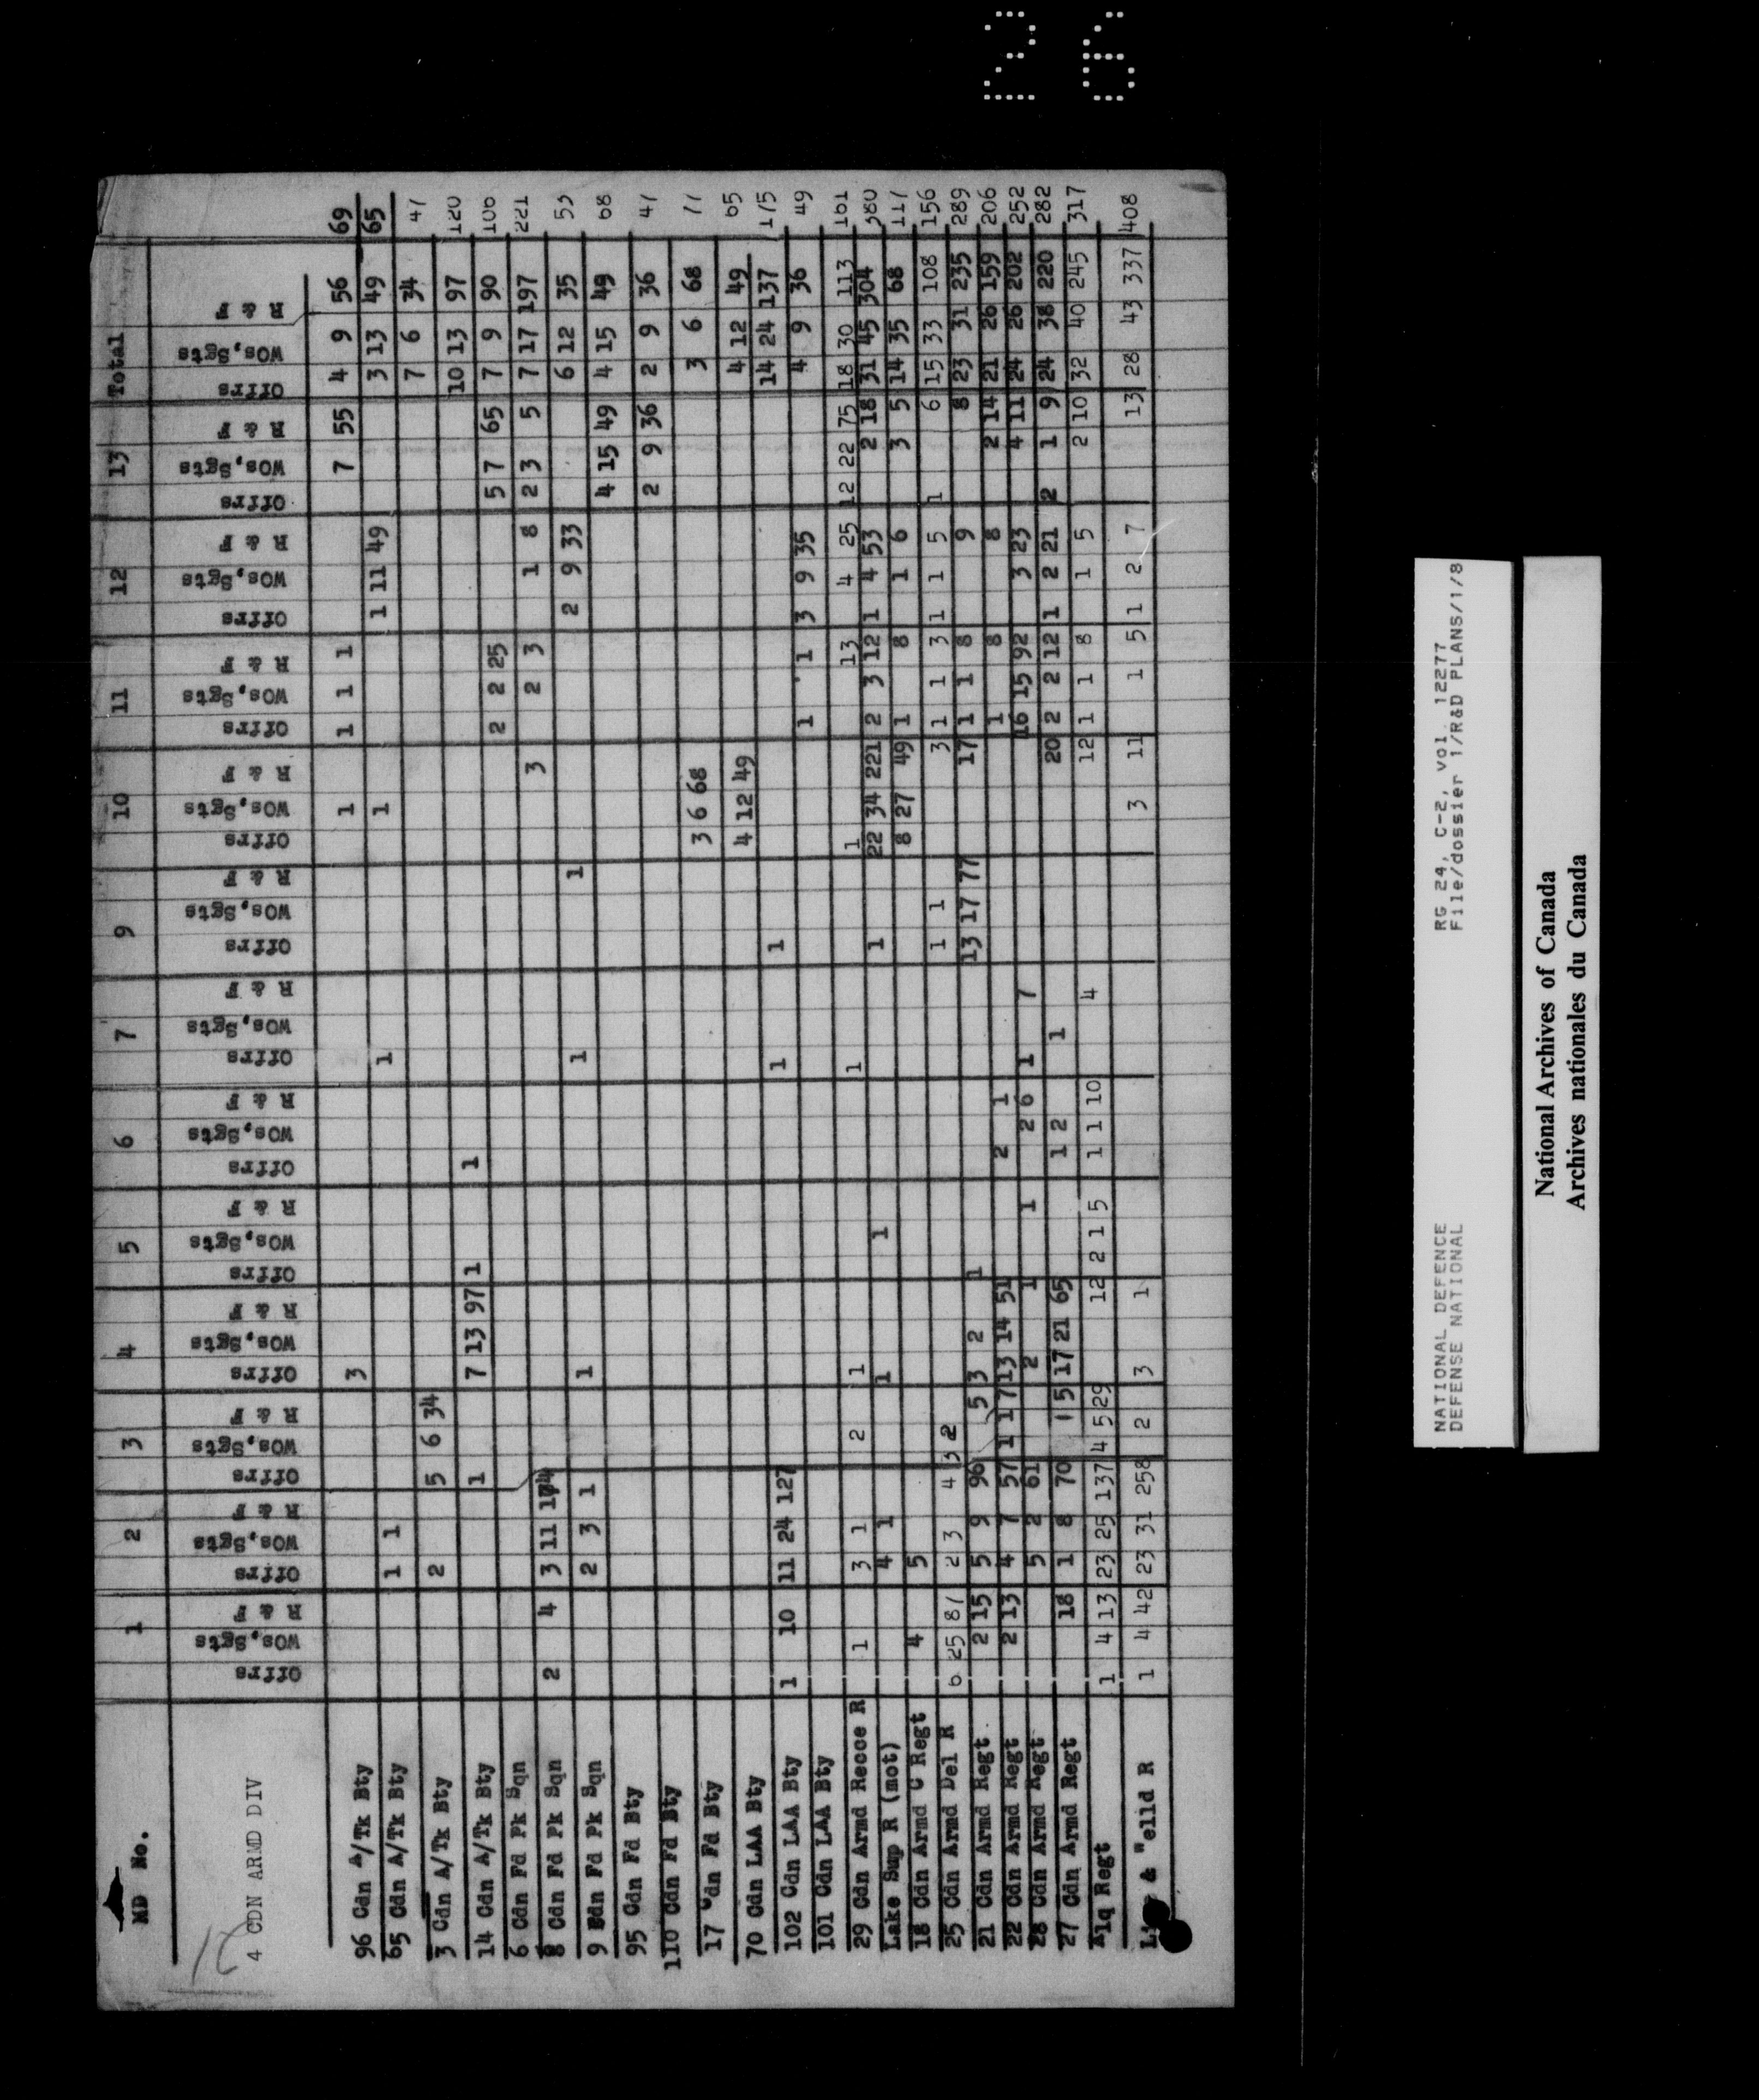 26
MD No. 1 2 3 4 5 6 7 9 10 11 12 13 Total
Offrs WOs,Sgts R & F Offrs WOs,Sgts R & F Offrs WOs,Sgts R & F Offrs WOs,Sgts R & F Offrs WOs,Sgts R & F Offrs WOs,Sgts R & F Offrs WOs,Sgts R & F Offrs WOs,Sgts R & F Offrs WOs,Sgts R & F Offrs WOs,Sgts R & F Offrs WOs,Sgts R & F Offrs WOs,Sgts R & F Offrs WOs,Sgts R & F
4 CDN ARMD DIV
96 Cdn A/Tk Bty 3 1 1 1 1 7 55 4 9 56 69
65 Cdn A/Tk Bty 1 1 1 1 1 11 49 3 13 49 65
3 Cdn A/Tk Bty 2 5 6 34 7 6 34 47
14 Cdn A/Tk Bty 1 7 13 97 1 1 10 13 97 120
6 Cdn Fd Pk Sqn 2 2 25 5 7 65 7 9 90 106
8 Cdn Fd Pk Sqn 2 4 3 11 174 3 2 3 1 8 2 3 5 7 17 197 221
9 Cdn Fd Pk Sqn 2 3 1 1 1 1 2 9 33 6 12 35 53
95 Cdn Fd Bty 4 15 49 4 15 49 68
110 Cdn Fd Bty 2 9 36 2 9 36 47
17 Cdn Fd Bty 3 6 68 3 6 68 77
70 Cdn LAA Bty 4 12 49 4 12 49 65
102 Cdn LAA Bty 1 10 11 24 127 1 1 14 24 137 175
101 Cdn LAA Bty 1 1 3 9 35 4 9 36 49
29 Cdn Armd Recce R 1 3 1 2 1 1 1 13 4 25 12 22 75 18 30 113 161
Lake Sup R (mot) 4 1 1 1 1 22 34 221 2 3 12 1 4 53 2 18 31 45 304 380
18 Cdn Armd C Regt 4 5 8 27 49 1 8 1 6 3 5 14 35 68 117
25 Cdn Armd Del R 6 25 87 2 3 4 3 2 1 1 3 1 1 3 1 1 5 1 6 15 33 108 156
21 Cdn Armd Regt 2 15 5 9 96 5 3 2 1 13 17 77 17 1 1 8 9 8 23 31 235 289
22 Cdn Armd Regt 2 13 4 7 57 1 17 13 14 51 2 1 1 8 8 2 14 21 26 159 206
28 Cdn Armd Regt 5 2 61 2 1 1 2 6 1 7 16 15 92 3 23 4 11 24 26 202 252
27 Cdn Armd Regt 18 1 8 70 1 5 17 21 65 1 2 1 20 2 2 12 1 2 21 2 1 9 24 38 220 282
Alq Regt 1 4 13 23 25 137 4 5 29 12 2 1 5 1 1 10 4 12 1 1 8 1 5 2 10 32 40 245 317
& Welld R 1 4 42 23 31 258 2 3 1 3 11 1 5 1 2 7 13 28 43 337 408
NATIONAL DEFENCE RG 24, C-2, vol. 12277
DEFENSE NATIONAL File/dossier 1/R&D PLANS/1/8
National Archives of Canada
Archives nationales du Canada